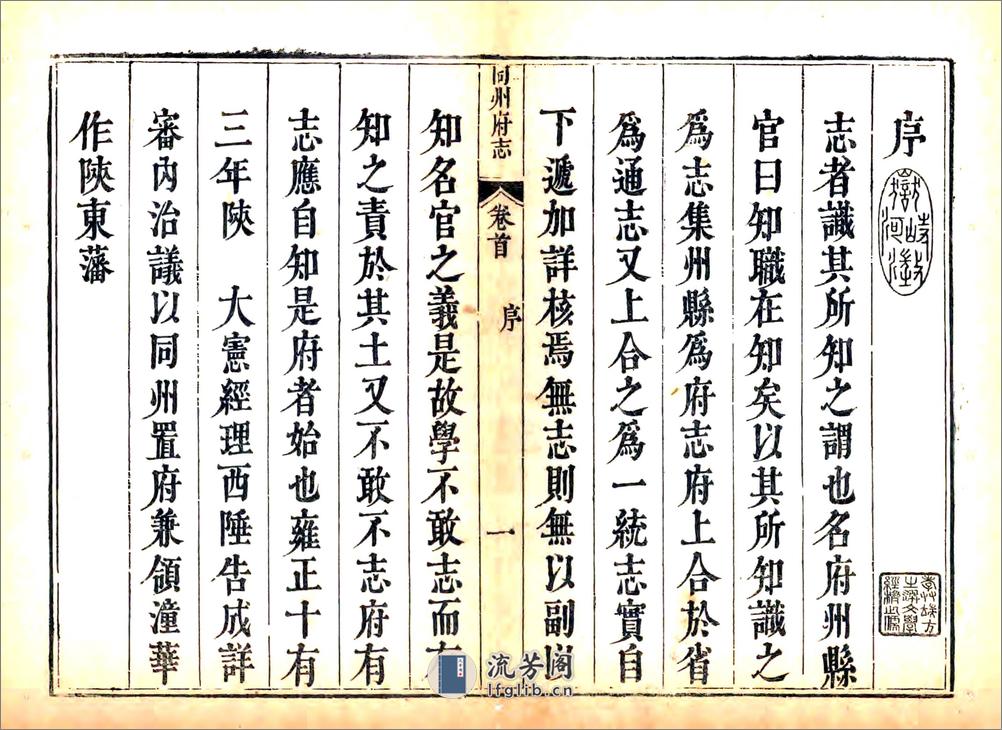 序
志者識其所知之謂也名府州縣
官曰知職在知矣以其所知識之
為志集州縣為府志府上合於省
為通志又上合之為一統志實自
下遞加詳核焉無志則無以副
同州府志 卷首 序 一
知名官之義是故學不敢志而
知之責於其土又不敢不志府有
志應自知是府者始也雍正十有
三年陝 大憲經理西陲告成詳
審內治議以同州置府兼領潼華
作陝東藩
流芳阁
lfglib.cn